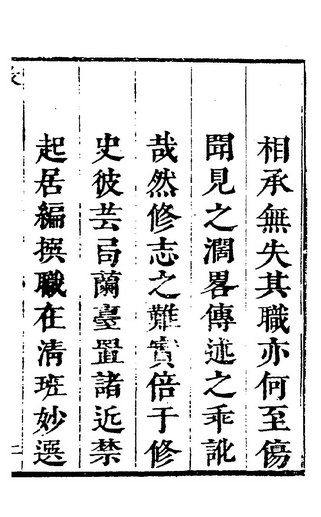 相承無失其職亦何至傷
聞見之濶畧傳述之乖訛
哉然修志之難實倍于修
史彼芸局蘭臺置諸近禁
起居編撰職在清班妙選
二